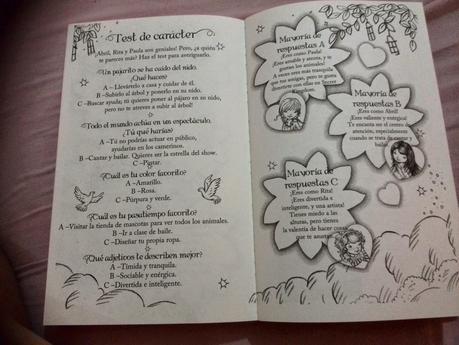 Test de carácter
¡Abril, Rita y Paula son geniales! Pero, ¿a quién
te pareces más? Haz el test para averiguarlo.
Un pajarito se ha caído del nido.
¿Qué haces?
A –Llevártelo a casa y cuidar de él.
B –Subirlo al árbol y ponerlo en su nido.
C –Buscar ayuda; tú quieres poner al pájaro en su nido,
pero no te atreves a subir al árbol!
Todo el mundo actúa en un espectáculo.
¿Tú qué harías?
A –Tú no podrías actuar en público,
ayudarías en los camerinos.
B –Cantar y bailar. Quieres ser la estrella del show.
C –Pintar.
¿Cuál es tu color favorito?
A –Amarillo.
B –Rosa.
C –Púrpura y verde.
¿Cuál es tu pasatiempo favorito?
A –Visitar la tienda de mascotas para ver todos los animales.
B –Ir a clase de baile.
C –Diseñar tu propia ropa.
¿Qué adjetivos te describen mejor?
A –Tímida y tranquila.
B –Sociable y enérgica.
C –Divertida e inteligente.
Mayoría de
respuestas A
¡Eres como Paula!
¡Eres amable y secreta, y te
gustan los animales!
A veces eres más tranquila
que tus amigas, pero te gusta
divertirte con ellas en Secret
Kingdom.
Mayoría de
respuestas B
¡Eres como Abril!
¡Eres valiente y enérgica!
Te encanta ser el centro de
atención, especialmente
cuando se trata de cantar y
bailar.
Mayoría de
respuestas C
¡Eres como Rita!
¡Eres divertida e
inteligente, y una artista!
Tienes miedo a las
alturas, pero tienes
la valentía de hacer cosas
que te asustan.